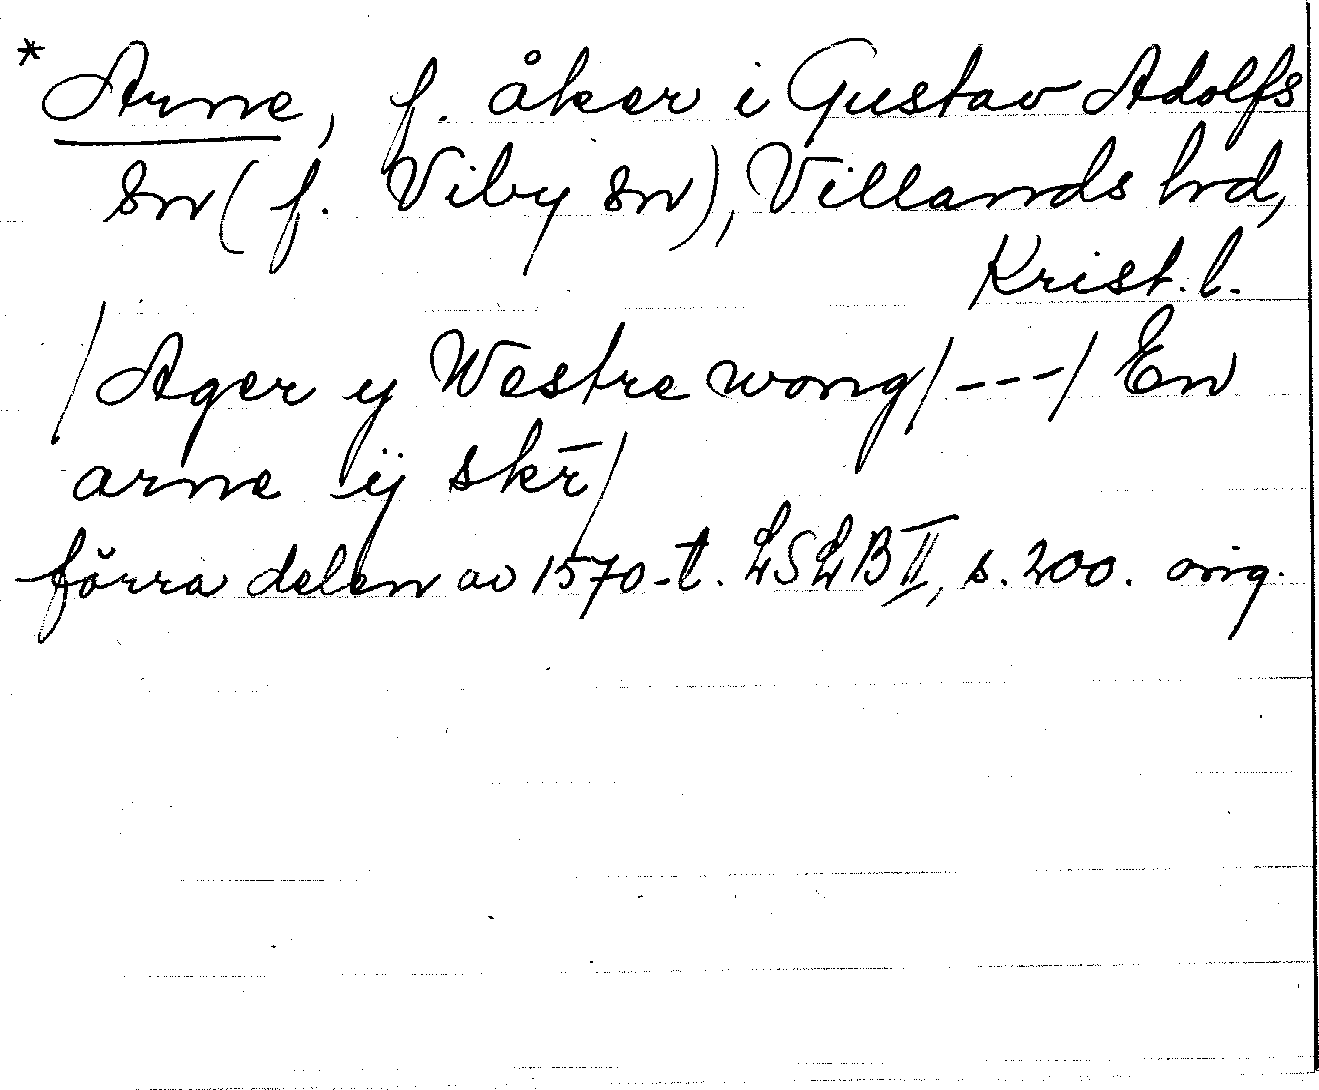 * Arne, f. åker i Gustav Adolfs
sn (f. Viby sn), Villands hd,
Krist. l.
/Ager y Westre wong/---/ En
arne ÿ skr̄/
förra delen av 1570-t. LSLB II, s. 200. orig.